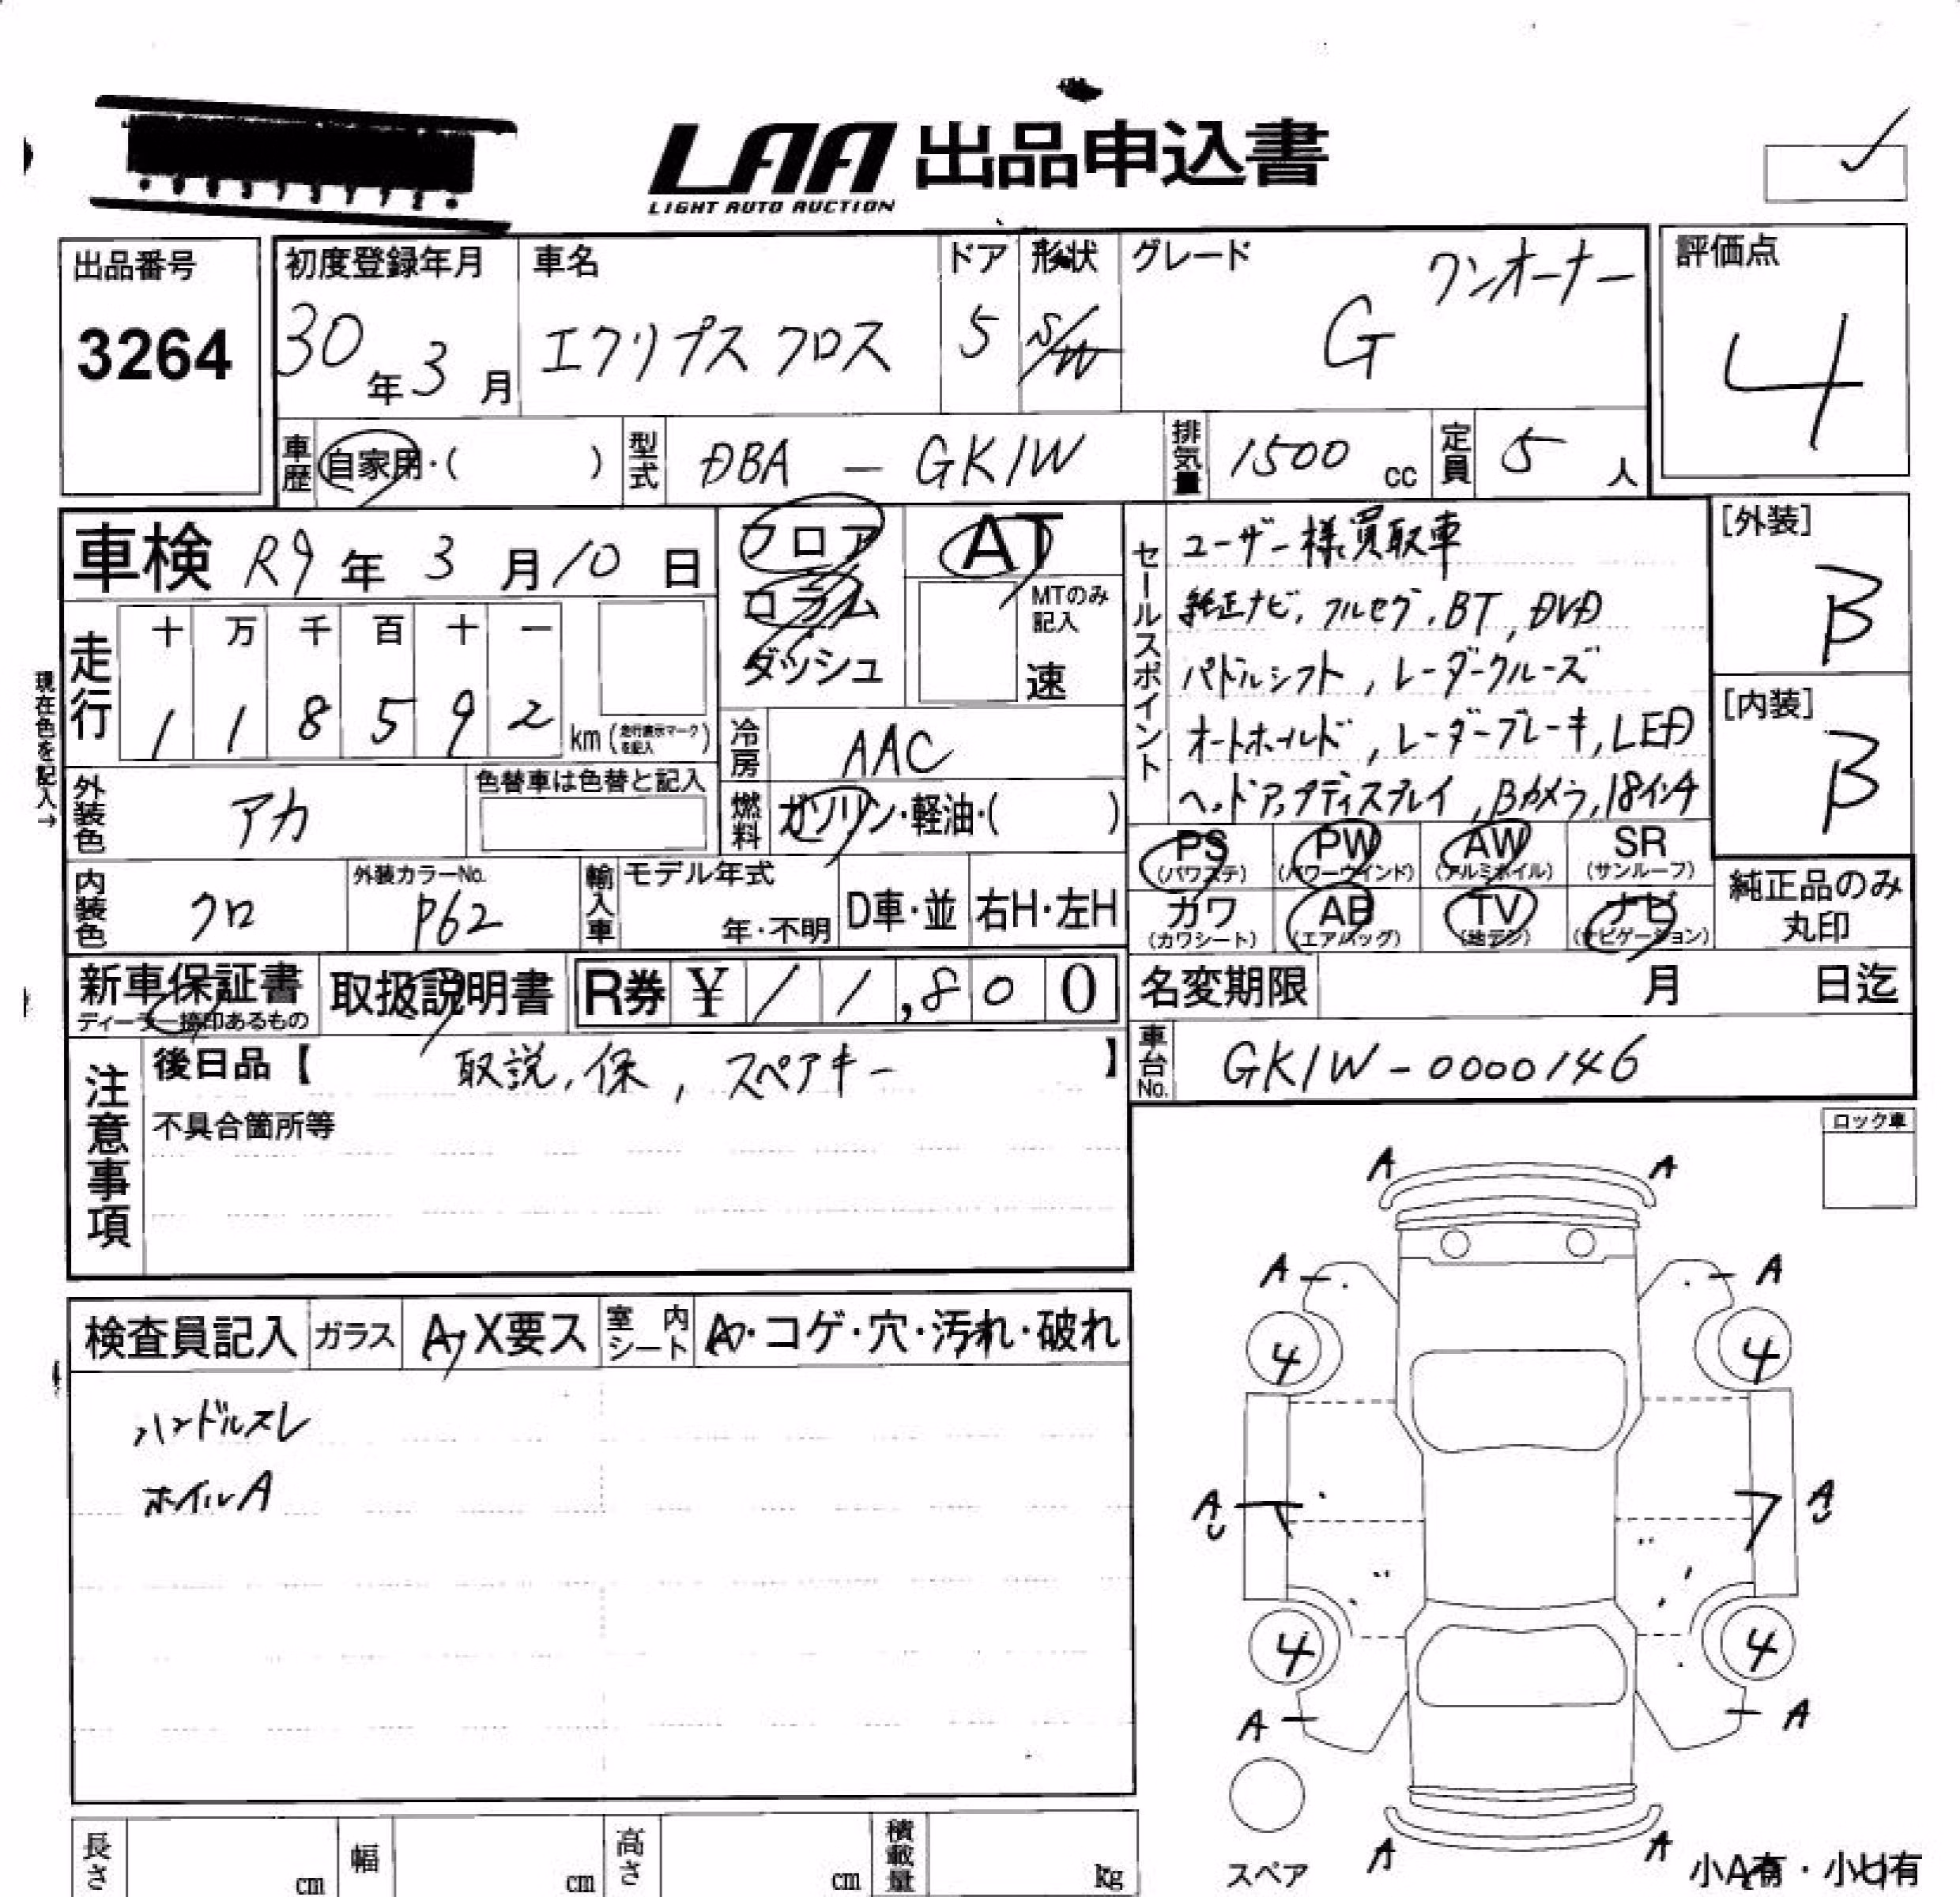 LAA 出品申込書
LIGHT AUTO AUCTION
出品番号
3264
初度登録年月
30年3月
車名
エクリプス クロス
ドア
5
形状
S/W
グレード
ワンオーナー
G
評価点
4
車歴 自家用・( )
型式 DBA - GK1W
排気量 1500 cc
定員 5 人
車検 R9年 3月10日
フロア
コラム
ダッシュ
AT
MTのみ
記入
速
走行
十 万 千 百 十 一
1 1 8 5 9 2 km (走行表示マークを記入)
現在色を記入→
冷房 AAC
燃料 ガソリン・軽油・( )
外装色 アカ
色替車は色替と記入
内装色 クロ
外装カラーNo.
P62
輸入車 モデル年式
年・不明
D車・並
右H・左H
セールスポイント
ユーザー様買取車
純正ナビ, フルセグ, BT, DVD
パドルシフト, レーダークルーズ
オートホールド, レーダーブレーキ, LED
ヘッドアップディスプレイ, Bカメラ, 18インチ
[外装]
B
[内装]
B
PS (パワステ)
PW (パワーウインド)
AW (アルミホイル)
SR (サンルーフ)
カワ (カワシート)
AB (エアバッグ)
TV (地デジ)
ナビ (ナビゲーション)
純正品のみ
丸印
新車保証書
ディーラー捺印あるもの
取扱説明書
R券 ¥ 11,800
名変期限 月 日迄
車台No. GK1W-0000146
注意事項
後日品【 取説, 保, スペアキー 】
不具合箇所等
ロック車
検査員記入
ガラス A, X要ス
室内シート A・コゲ・穴・汚れ・破れ
ハンドルスレ
ホイルA
A A
A A
4 4
A A
4 4
A A
A A
スペア
小A有・小U有
長さ cm
幅 cm
高さ cm
積載量 kg